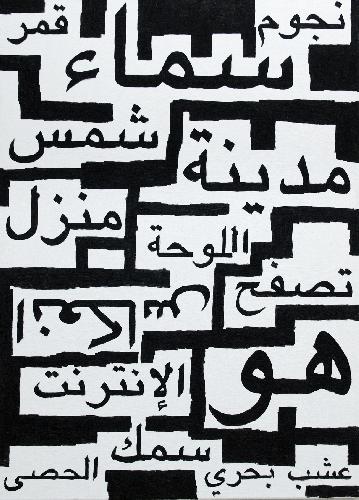 نجوم قمر
سماء
شمس
مدينة
منزل
اللوحة
تصفح
انعكاس
هو
الإنترنت
سمك
عشب بحري الحصى